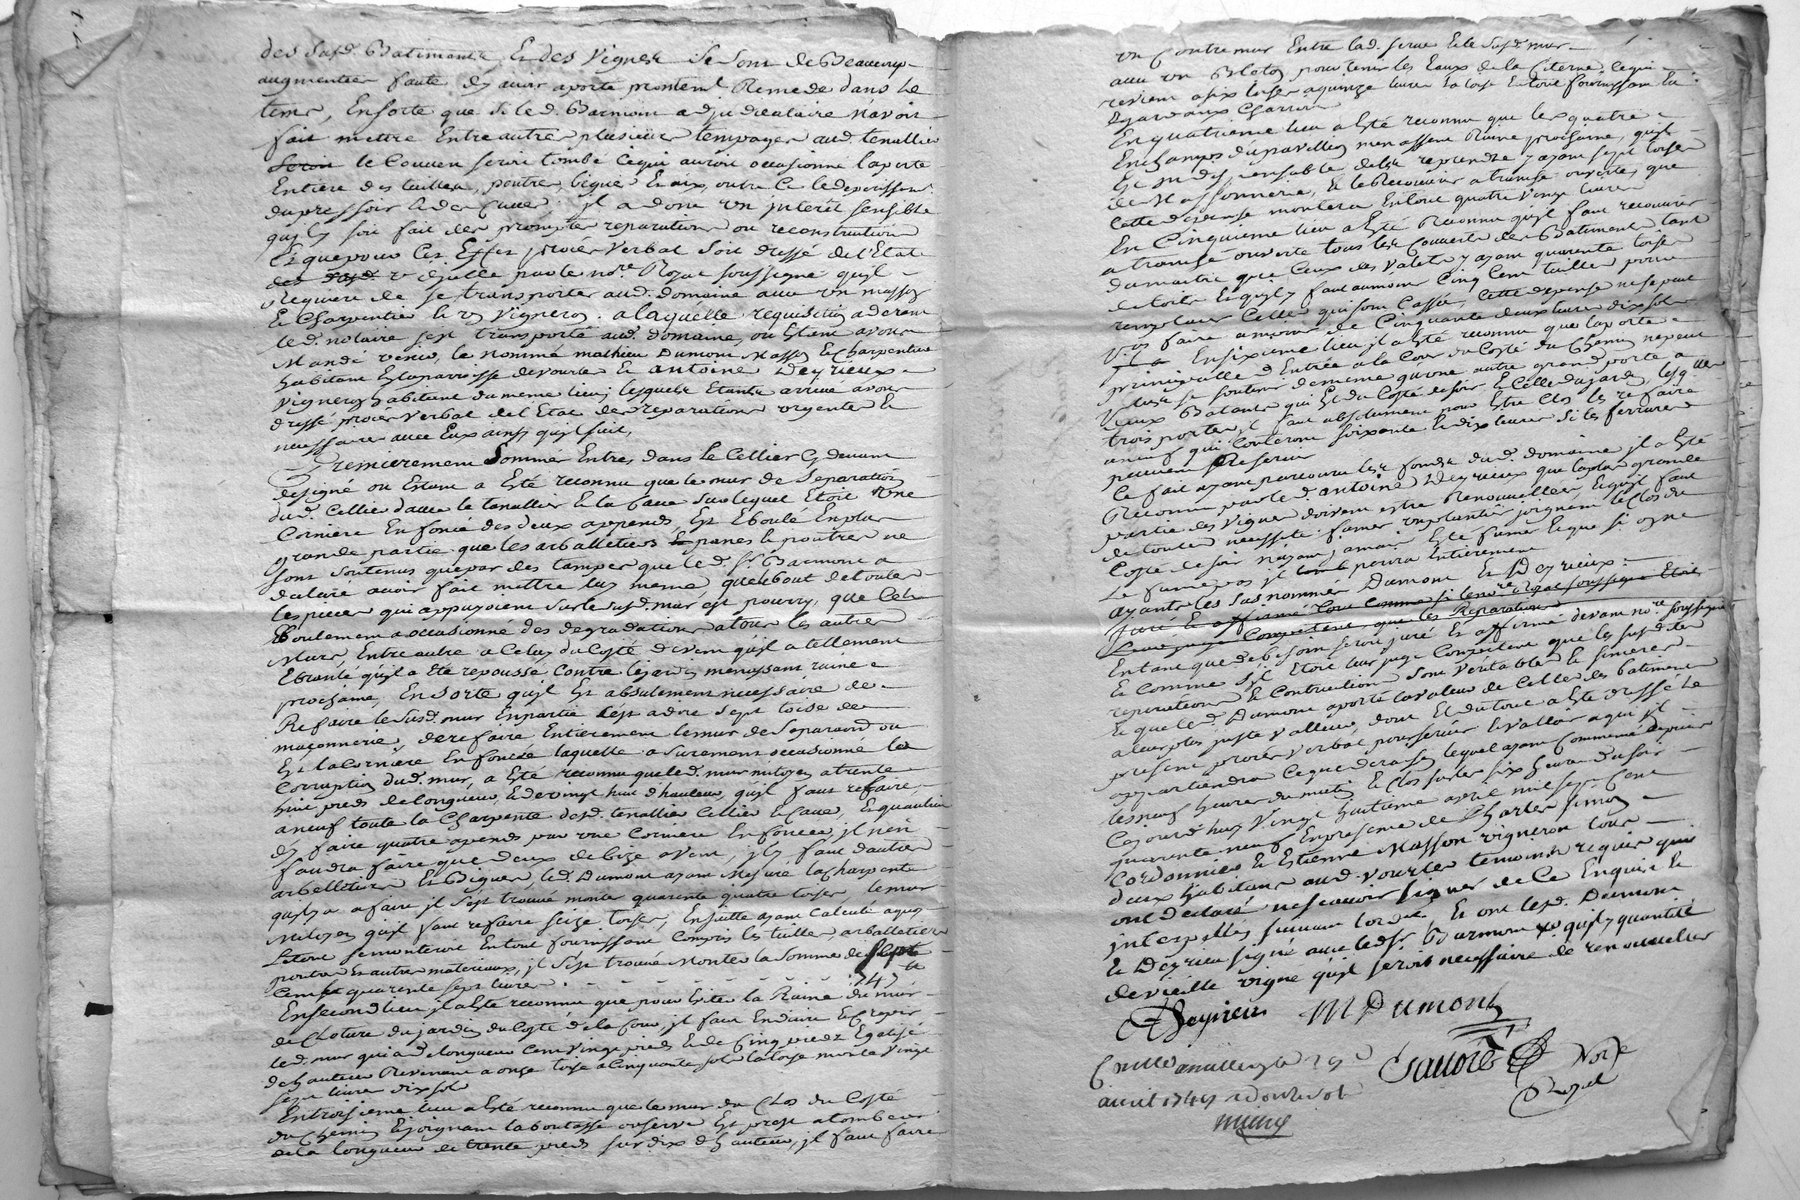 des susd. Batiments Et des Vignes Se sont de Beaucoup
augmentées faute dy avoir aporté promtemt Remede dans le
tems, Ensorte que Si led. Sr Barmont adjudicataire N'avoit
fait mettre Entre autre plusieurs tempages aud. tenallier
le Couvert seroit tombé Cequi auroit occasionné la perte
Entiere des tuilles, poutres, bigues Et aix, outre Ce le deperissemt
du pressoir Et des Cuves. il a donc un interêt sensible
quil y soit fait des promptes reparations ou reconstructions
Et que pour Cet Effet procès Verbal Soit dressé de l'Etat
par le nore Royal soussigné quil
Requiert de se transporter aud. domaine avec un masson
Et Charpentier Et un Vigneron. a laquelle requisition aderant
led. notaire sest transporté aud. domaine, ou Etant avons
Mandé venir le nommé mathieu Dumont Masson Et Charpentier
habitant En la parroisse de vourles Et antoine Deyrieux
Vigneron habitant du meme lieu, lesquels Etants arrivé avons
dressé procès verbal de l'Etat des reparations urgentes Et
necessaires avec Eux ainsy quil suit,
Premierement Sommes Entrés dans le Cellier Cy devant
designé ou Etant a Eté reconnu que le mur de Separation
dud. Cellier d'avec le tenallier Et la Cave Sur lequel Etoit Une
Corniere Enfoncé des deux apends, Est Eboulé En plus
grande partie que les arballetiers panes Et poutres ne
sont soutenus que par des tampes que led. Sr. Barmont a
declaré avoir fait mettre luy meme, que le bout de toutes
les pieces qui appuyoient sur le susd. mur est pourry, que Cet
Eboulement a occasionné des degradations a tous les autres
Murs Entre autre a Celuy du Costé de vent quil a tellement
Ebranlé quil a Eté repoussé Contre le jardin menassant ruine
prochaine, En sorte quil Est absolument necessaire de
Refaire le Susd. mur En partie C'est a dire Sept toise de
maçonnerie, de refaire Entierement le mur de Separaõn ou
Est la Corniere Enfoncée laquelle a surement occasionné la
Corruption dud. mur, a Eté reconnu que led. mur mitoyen a trente
huit pieds de longueur, Et de vingt huit d'hauteur, quil faut refaire
a neuf toute la Charpente desd. tenallier Cellier Et Cave, Et quau lieu
dy faire quatre apends par une Corniere Enfoncée, il n'en
faudra faire que deux de bize a vent, il y faut d'autres
arballetiers Et Bigues, led. Dumont ayant Mesuré la Charpente
quil y a a faire il sest trouvé monter quarante quatre toises le mur
Mitoyen quil faut refaire seize toises, Ensuitte ayant Calculé a quoy
Le tout se monteroit En tout fournissant Compris les tuilles, arballetiers
poutres Et autres materiaux, il s'est trouvé Monter la Somme de Sept
Cent quarente sept livres . - - - - - - 747 lt
En second lieu il a Eté reconnu que pour Eviter la Ruine du mur
de Cloture du jardin du Costé de la Cour, il faut Enduire Et Crepir
led. mur qui a de longueur Cent vingt pieds Et de Cinq pieds Egalisé
d'hauteur Revenant a onze toise a Cinquante sols la toise monte vingt
sept livres dix sols
En troisieme lieu a Eté reconnu que le mur du Clos du Costé
du Chemin Et joignant la boutasse ou serve Est prest a tomber
de la longueur de trente pieds sur dix d'hauteur, il faut faire
un Contremur Entre lad. serve Et le susd. mur
avec un Bloton pour tenir les Eaux de la Citerne, Ce qui
revient a six toises a quinze livres la toise En tout fournissant Eu
Egard aux Charrois
En quatrieme lieu a Eté reconnu que les quatre
Enchamps du pavillon menassent Ruine prochaine, quil
Est indispensable de les reprendre y ayant sept toises
de Massonnerie, Et le Recouvrir a tranche ouverte, que
Cette depense montera En tout quatre vingt livres
En Cinquieme lieu a Eté Reconnu quil faut recouvrir
a tranche ouverte tous les Couverts des Batiments tant
du maitre que Ceux des Valets y ayant quarente toises
de toits Et quil y faut au moins Cinq Cent tuilles pour
remplacer Celles qui sont Cassées, Cette depense ne se peut
faire a moins de Cinquante deux livres dix sols
En sixieme lieu il a Eté reconnu que la porte
principalle d'Entrée a la Cour du Costé du Chemin ne peut
plus se soutenir de meme qu'une autre grande porte a
deux Batants qui Est du Costé de soir Et Celle du jardin, lesquelles
trois portes il faut absolument pour Etre Clos les refaire
a neuf qui Couteront soixante Et dix livres Si les ferrures
peuvent Reservir
Ce fait ayant parcouru les fonds dud. domaine il a Eté
Reconnu par led. antoine Deyrieux que la plus grande
partie des Vignes doivent estre Renouvellées, Et quil faut
de toutes necessité fumer un plantier joignant le Clos du
Costé de soir n'ayant jamais Eté fumer Et que si on ne
Le fume pas il perira Entierement
ayants les susnommés Dumont Et Deyrieux
juré Et affirmé tout comme si le nore Royal soussigné Etoit
leur juge Competent que les Reparations
En tant que de besoin seroit juré Et affirmé devant nore soussigné
Et comme s'il Etoit leur juge Competent que les susdites
reparations Et Contructions sont veritables Et sinceres
Et que led. Dumont a porté la valeur de Celles des batiments
a leur plus juste valleur dont Et du tout a Eté dressé le
present procès verbal pour servir Et valloir a qui il
appartiendra Ce que de raison lequel ayant Commencé depuis
les neuf heures du matin Et Clos sur les six heures du soir
Cejourd'huy Vingt huitieme avril mil sept Cent
quarente neuf En presence de Charles Simon
Cordonnier Et Etienne Masson vigneron tous
deux habitans aud. vourles temoins requis qui
ont declaré ne scavoir signer de Ce Enquis Et
interpellés suivant lordce Et ont lesd. Dumont
Et Deyrieu signé avec ledSr. Barmont quil y quantité
de vieille vigne quil seroit necessaire de renouveller
Deyrieux MDumont
Controllé a millery le 29
avril 1749 R douze sols
Gauoire Nore
Royal